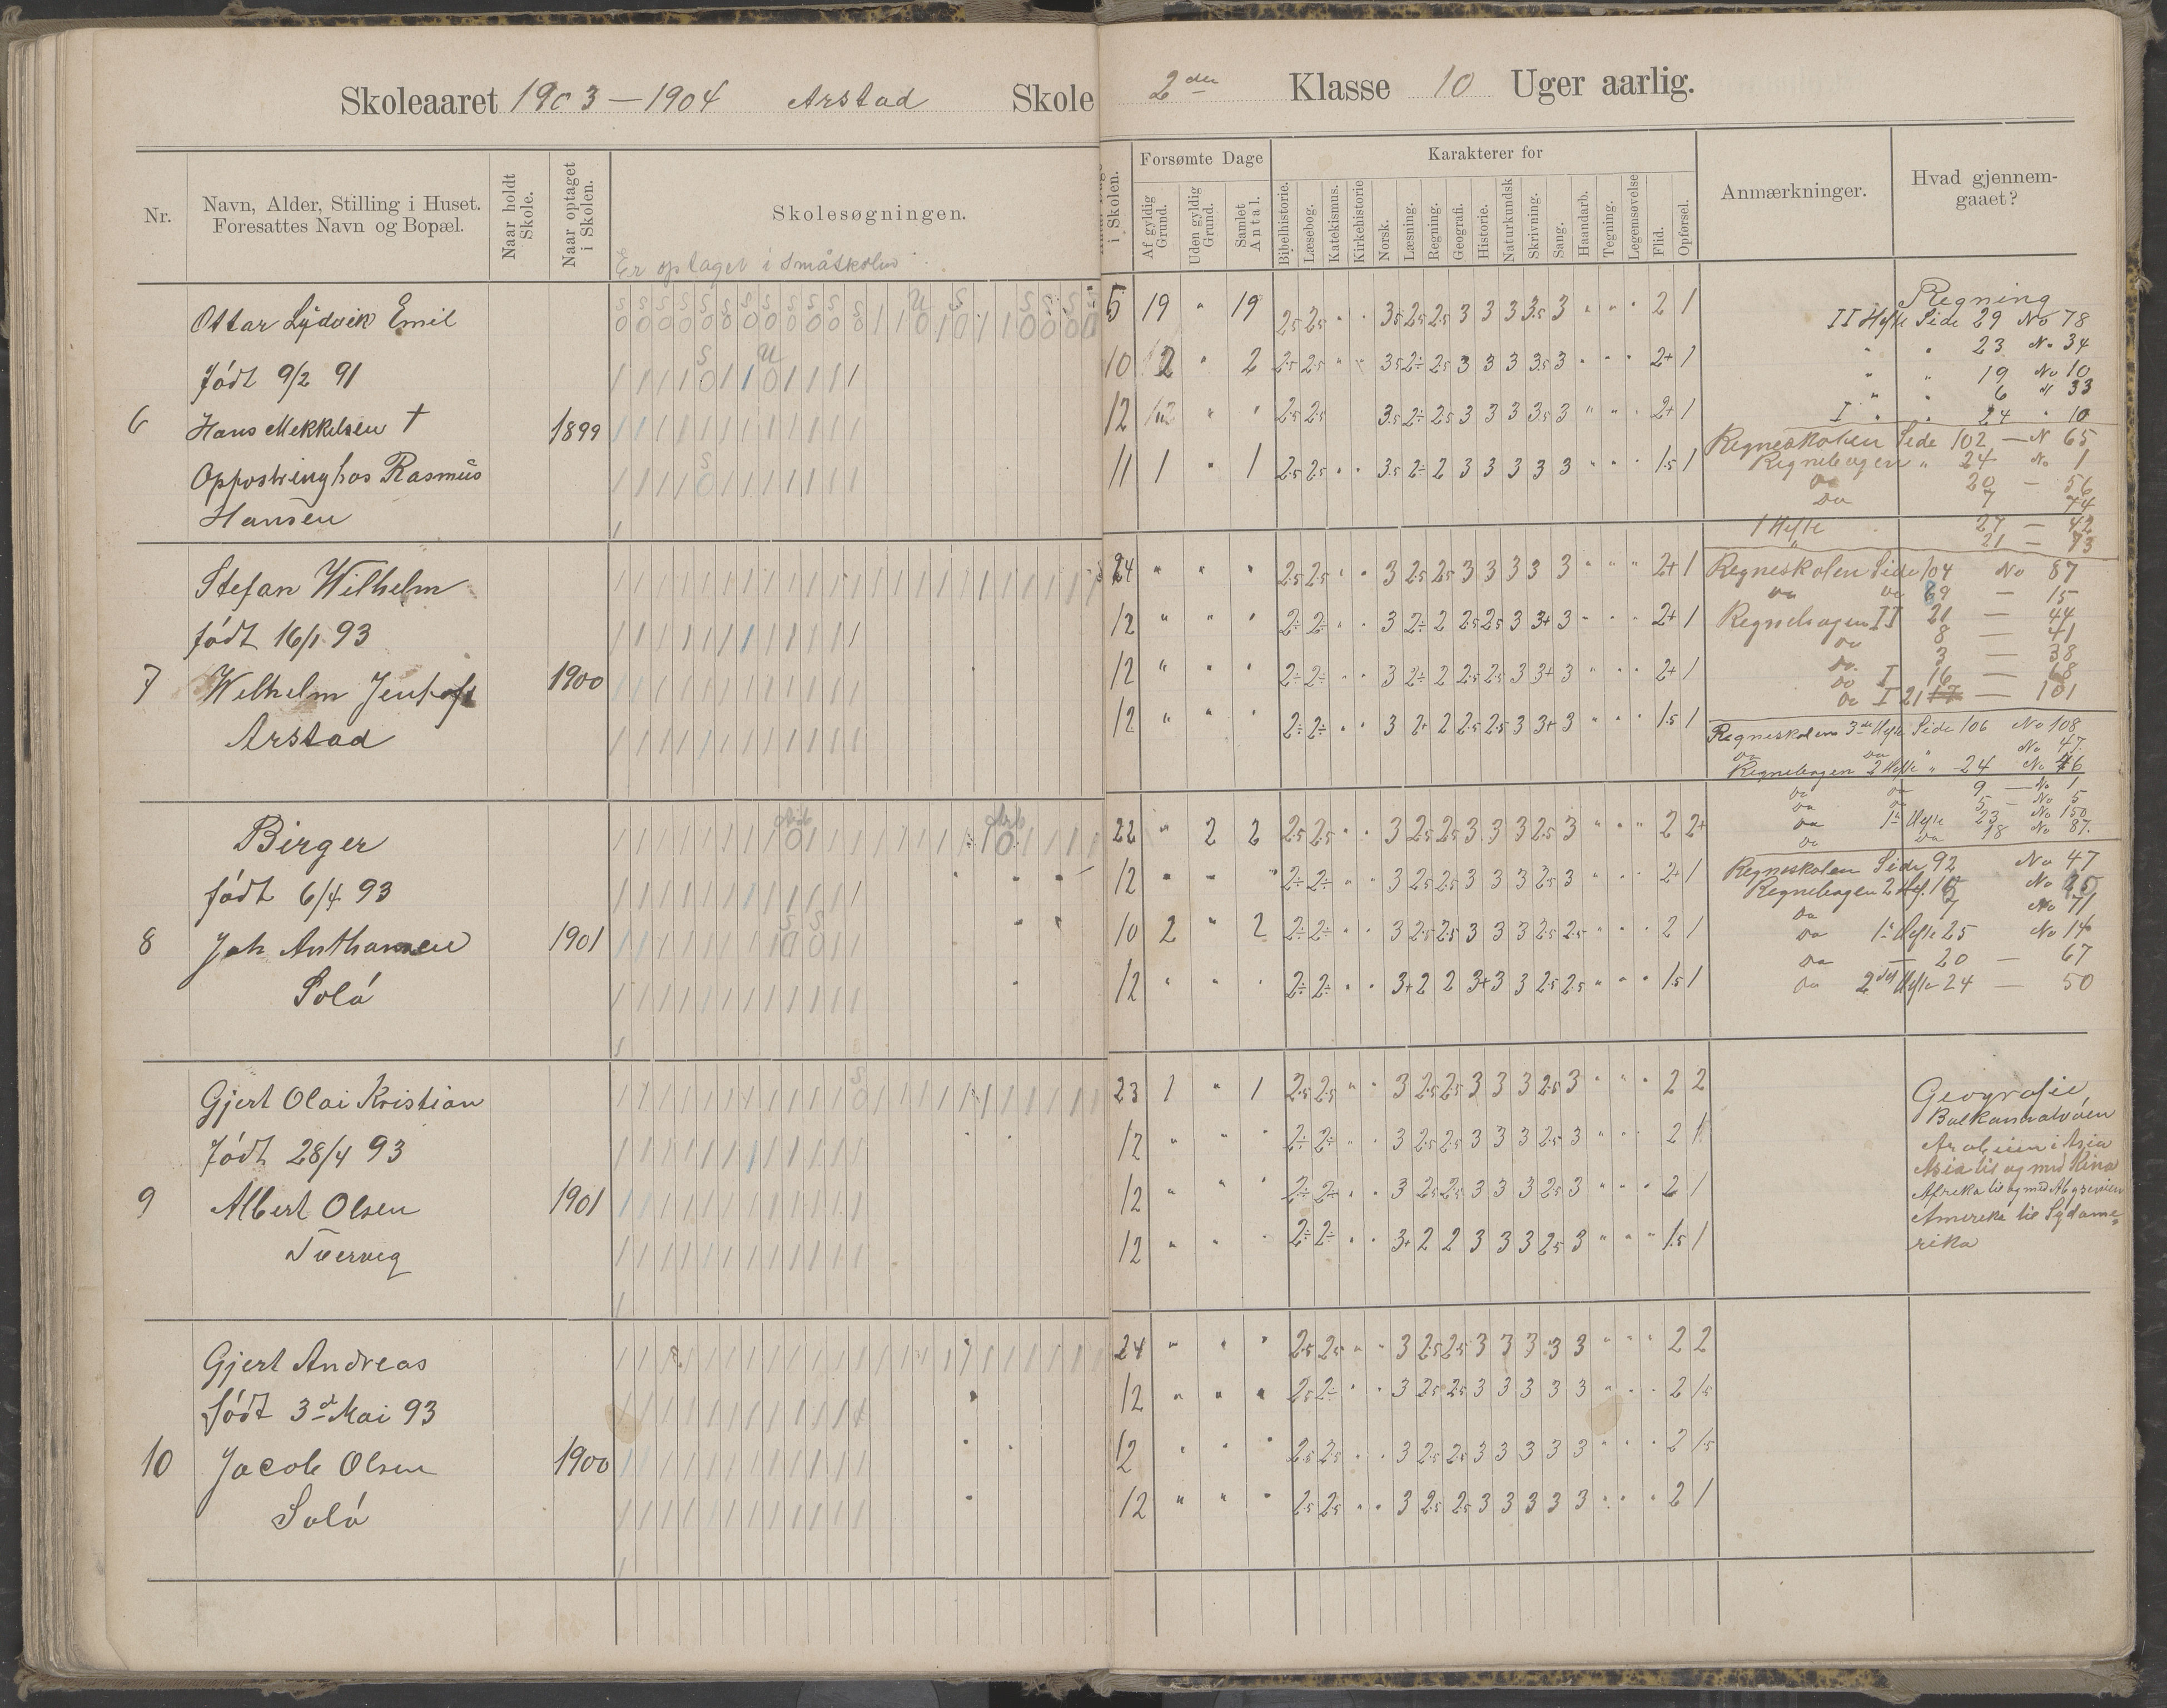 Skoleaaret 1903 — 1904 Arstad Skole
2den Klasse 10 Uger aarlig.
Nr.
Navn, Alder, Stilling i Huset.
Foresattes Navn og Bopæl.
Naar holdt Skole.
Naar optaget i Skolen.
Skolesøgningen.
Er optaget i Småskolen
i Skolen.
Forsømte Dage
Af gyldig Grund.
Uden gyldig Grund.
Samlet Antal.
Karakterer for
Bibelhistorie.
Læsebog.
Katekismus.
Kirkehistorie
Norsk.
Læsning.
Regning.
Geografi.
Historie.
Naturkundsk
Skrivning.
Sang.
Haandarb.
Tegning.
Legemsøvelse
Flid.
Opførsel.
Anmærkninger.
Hvad gjennem-
gaaet?
6
Ottar Lydvik Emil
født 9/2 91
Hans Mekkelsen †
Oppostring hos Rasmus
Hansen
1899
5 19 " 19 2.5 2.5 " " 3.5 2.5 2.5 3 3 3 3.5 3 " " " 2 1
10 2 " 2 2.5 2.5 " " 3.5 2÷ 2.5 3 3 3 3.5 3 " " " 2+ 1
12 " " 2.5 2.5 3.5 2÷ 2.5 3 3 3 3.5 3 " " " 2+ 1
11 1 " 1 2.5 2.5 " " 3.5 2÷ 2 3 3 3 3 3 " " " 1.5 1
7
Stefan Wilhelm
født 16/1 93
Wilhelm
Arstad
1900
24 " " " 2.5 2.5 " " 3 2.5 2.5 3 3 3 3 3 " " " 2+ 1
12 " " " 2÷ 2÷ " " 3 2÷ 2 2.5 2.5 3 3+ 3 " " " 2+ 1
12 " " " 2÷ 2÷ " " 3 2÷ 2 2.5 2.5 3 3+ 3 " " " 2+ 1
12 " " " 2÷ 2÷ " " 3 2+ 2 2.5 2.5 3 3+ 3 " " " 1.5 1
8
Birger
født 6/4 93
Joh Anthonsen
Solø
1901
22 " 2 2 2.5 2.5 " " 3 2.5 2.5 3 3 3 2.5 3 " " " 2 2+
12 " " " 2÷ 2÷ " " 3 2.5 2.5 3 3 3 2.5 3 " " " 2+ 1
10 2 " 2 2÷ 2÷ " " 3 2.5 2.5 3 3 3 2.5 2.5 " " " 2 1
12 " " " 2÷ 2÷ " " 3+ 2 2 3+ 3 3 2.5 2.5 " " " 1.5 1
9
Gjert Olai Kristian
født 28/4 93
Albert Olsen
Tverveg
1901
23 1 " 1 2.5 2.5 " " 3 2.5 2.5 3 3 3 2.5 3 " " " 2 2
12 " " " 2÷ 2÷ " " 3 2.5 2.5 3 3 3 2.5 3 " " " 2 1
12 " " " 2÷ 2÷ " " 3 2.5 2.5 3 3 3 2.5 3 " " " 2 1
12 " " " 2÷ 2÷ " " 3+ 2 2 3 3 3 2.5 3 " " " 1.5 1
10
Gjert Andreas
født 3d Mai 93
Jacob Olsen
Solø
1900
24 " " " 2.5 2.5 " " 3 2.5 2.5 3 3 3 3 3 " " " 2 2
12 " " " 2.5 2÷ " " 3 2.5 2.5 3 3 3 3 3 " " " 2 1.5
12 " " " 2.5 2.5 " " 3 2.5 2.5 3 3 3 3 3 " " " 2 1.5
12 " " " 2.5 2.5 " " 3 2.5 2.5 3 3 3 3 3 " " " 2 1
Regning
II Hefte Side 29 No 78
" " 23 No 34
" " 19 No 10
" " 6 " 33
I " " 24 " 10
Regneskolen Side 102 — N 65
Regnebogen " 24 No 1
Do 20 — 56
Do 7 74
1 Hefte 27 — 42
" 21 — 73
Regneskolen Side 104 No 87
Do Do 89 — 15
Regnebogen II 21 — 44
Do 8 — 41
Do 3 — 38
Do I 16 — 68
Do I 21 17 — 101
Regneskolens 3die Hefte Side 106 No 108
Do Do " No 47
Regnebogen 2 Hefte " 24 No 46
Do Do 9 — No 1
Do Do 5 — No 5
Do 1te Hefte 23 No 150
Do Do 18 No 87.
Regneskolen Side 92 No 47
Regnebogen 2 Hef. 15 No 25
Do 7 No 71
Do 1te Hefte 25 No 146
Do — 20 — 67
Do 2det Hefte 24 — 50
Geografie
Balkanhalvøen
Arabien i Asia
Asia til og med Kina
Afrika til og med Abysenien
Amerika til Sydame-
rika